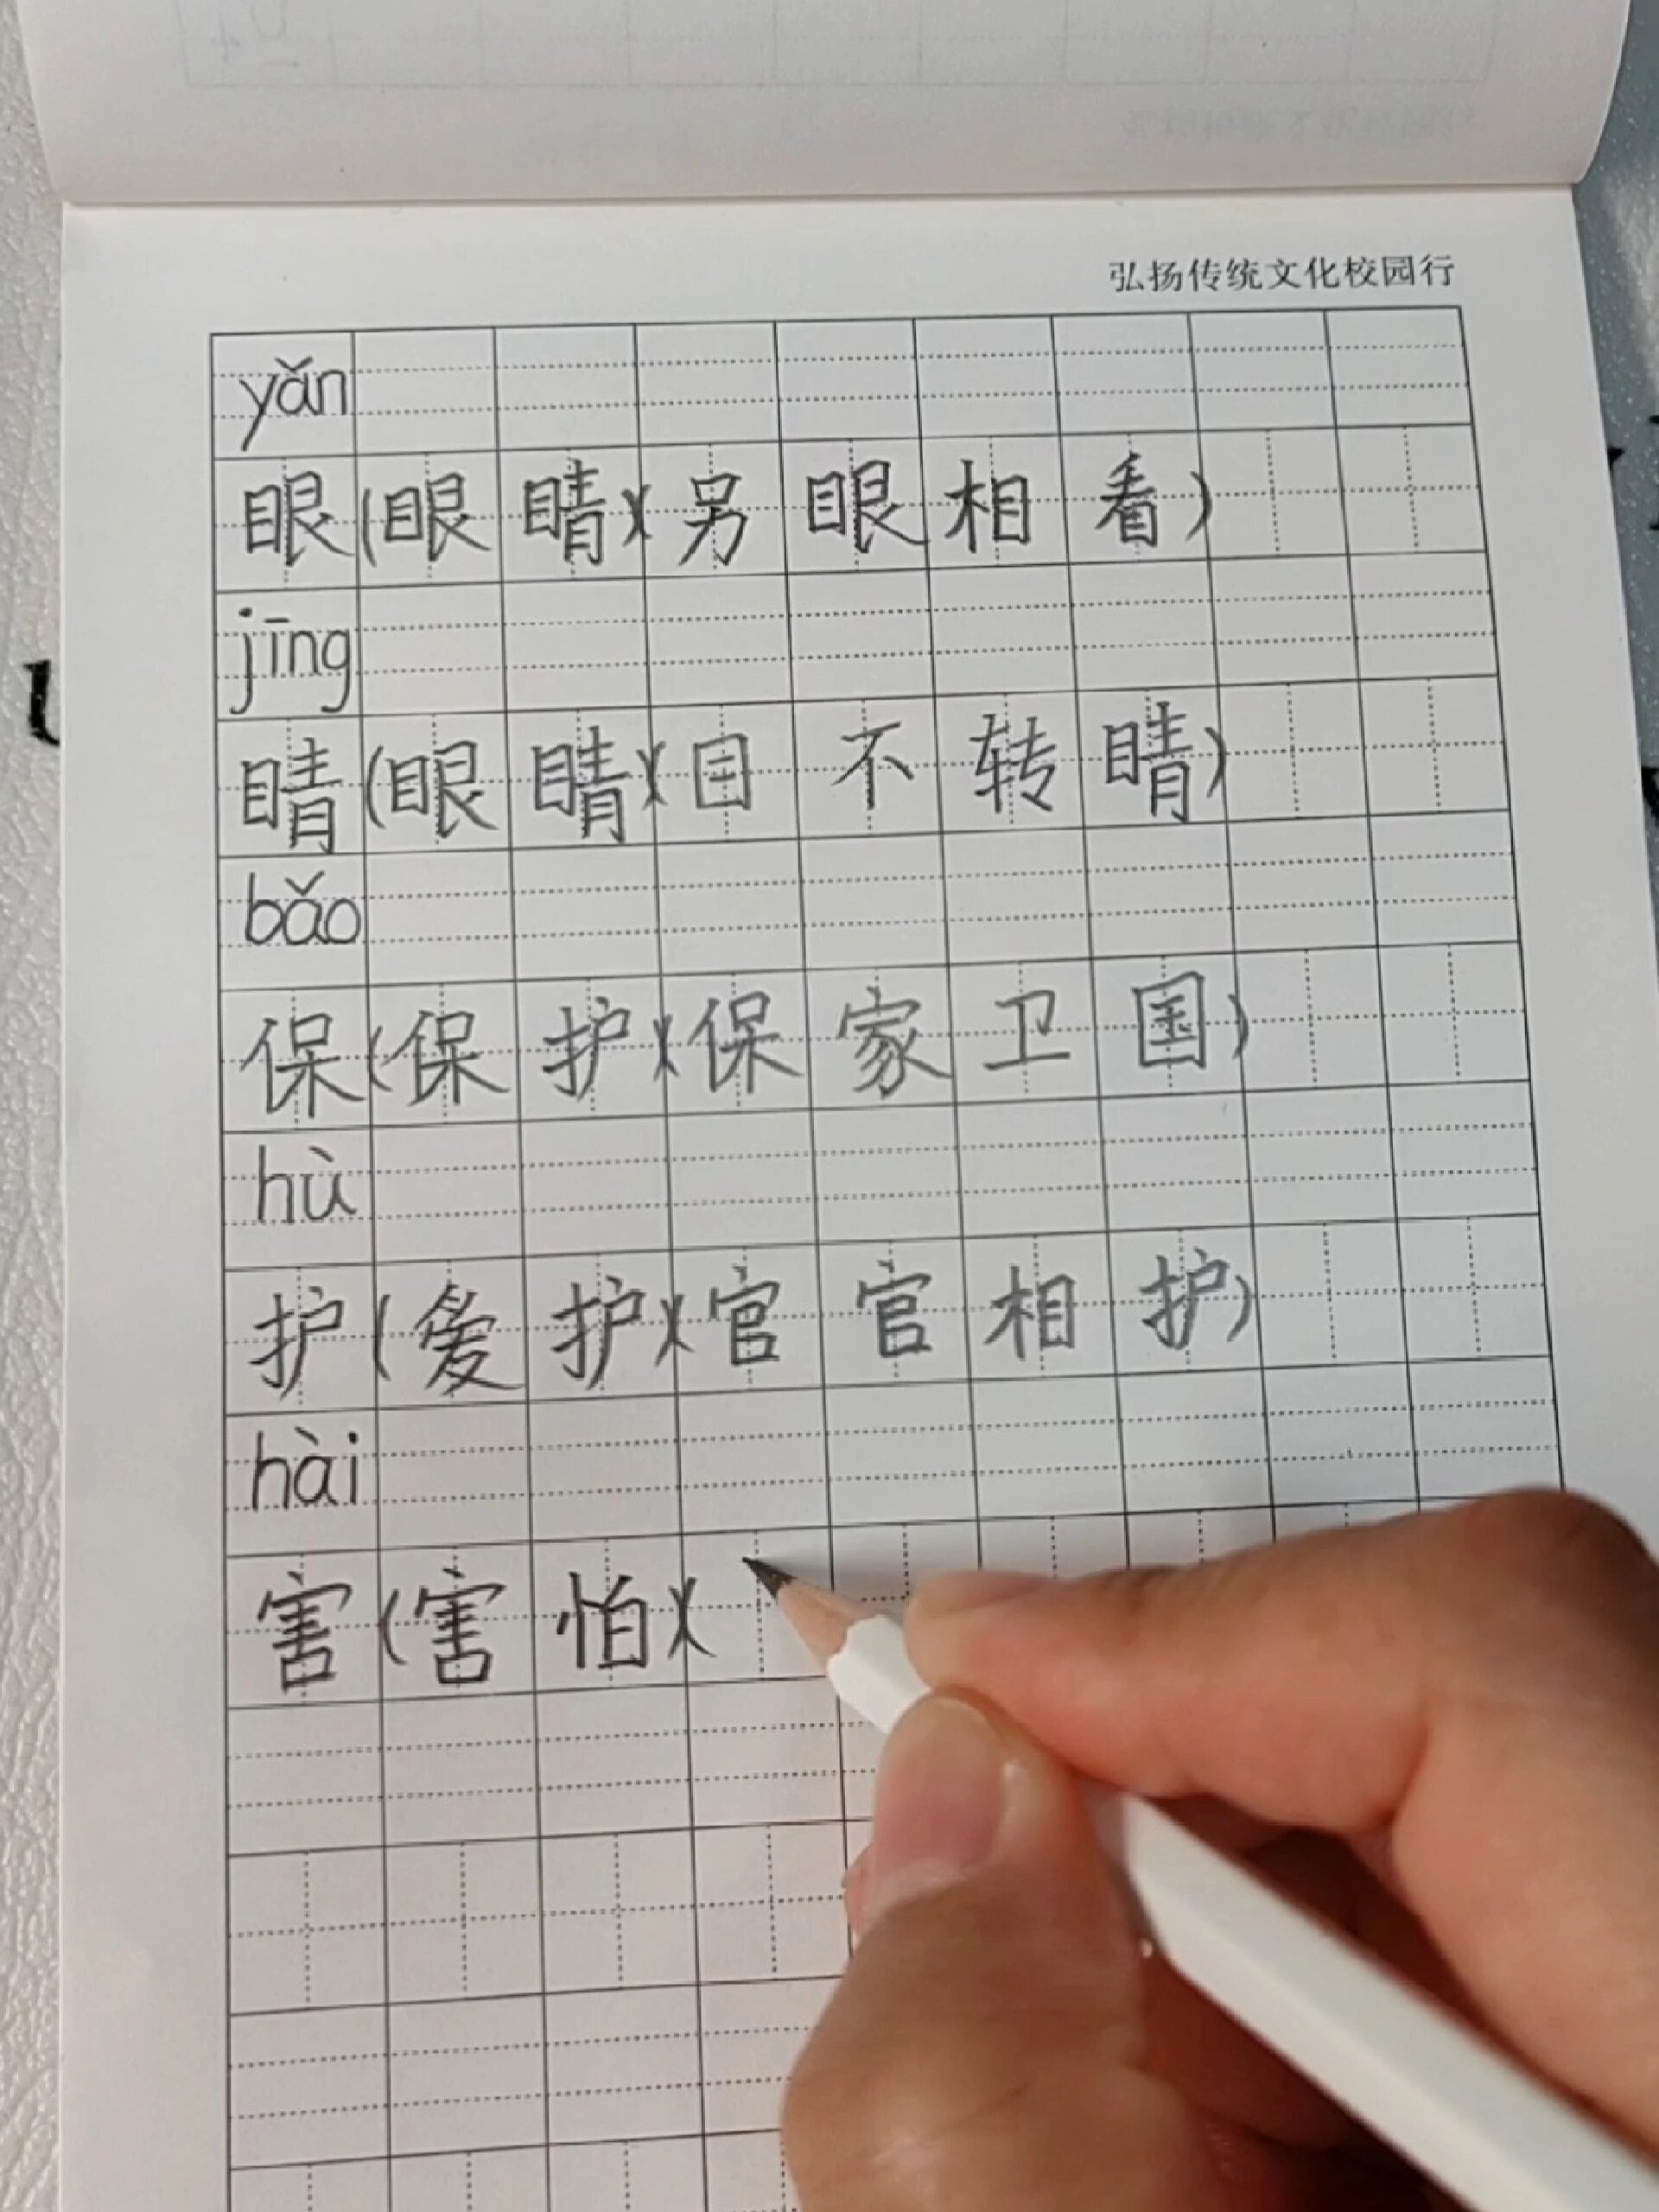 弘扬传统文化校园行
yǎn
眼(眼睛)(另眼相看)
jīng
睛(眼睛)(目不转睛)
bǎo
保(保护)(保家卫国)
hù
护(爱护)(官官相护)
hài
害(害怕)(